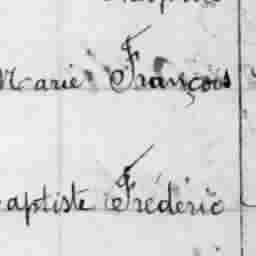 Marie François
aptiste Fréderic